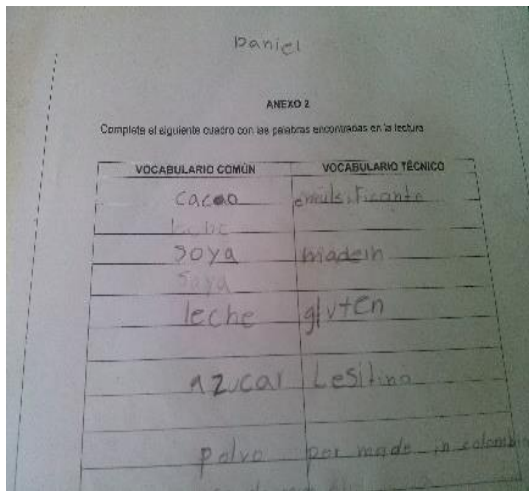 Daniel
ANEXO 2
Complete el siguiente cuadro con las palabras encontradas en la lectura
VOCABULARIO COMÚN VOCABULARIO TÉCNICO
cacao emulsificante
soya madein
soya
leche gluten
azucar Lesitina
polvo por made in colombia